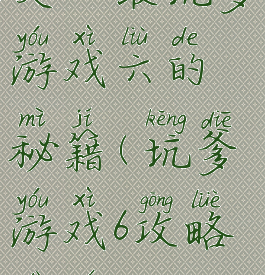 yóu xì liù de
游戏六的
mì jí kēng diē
秘籍(坑爹
yóu xì gōng lüè
游戏6攻略